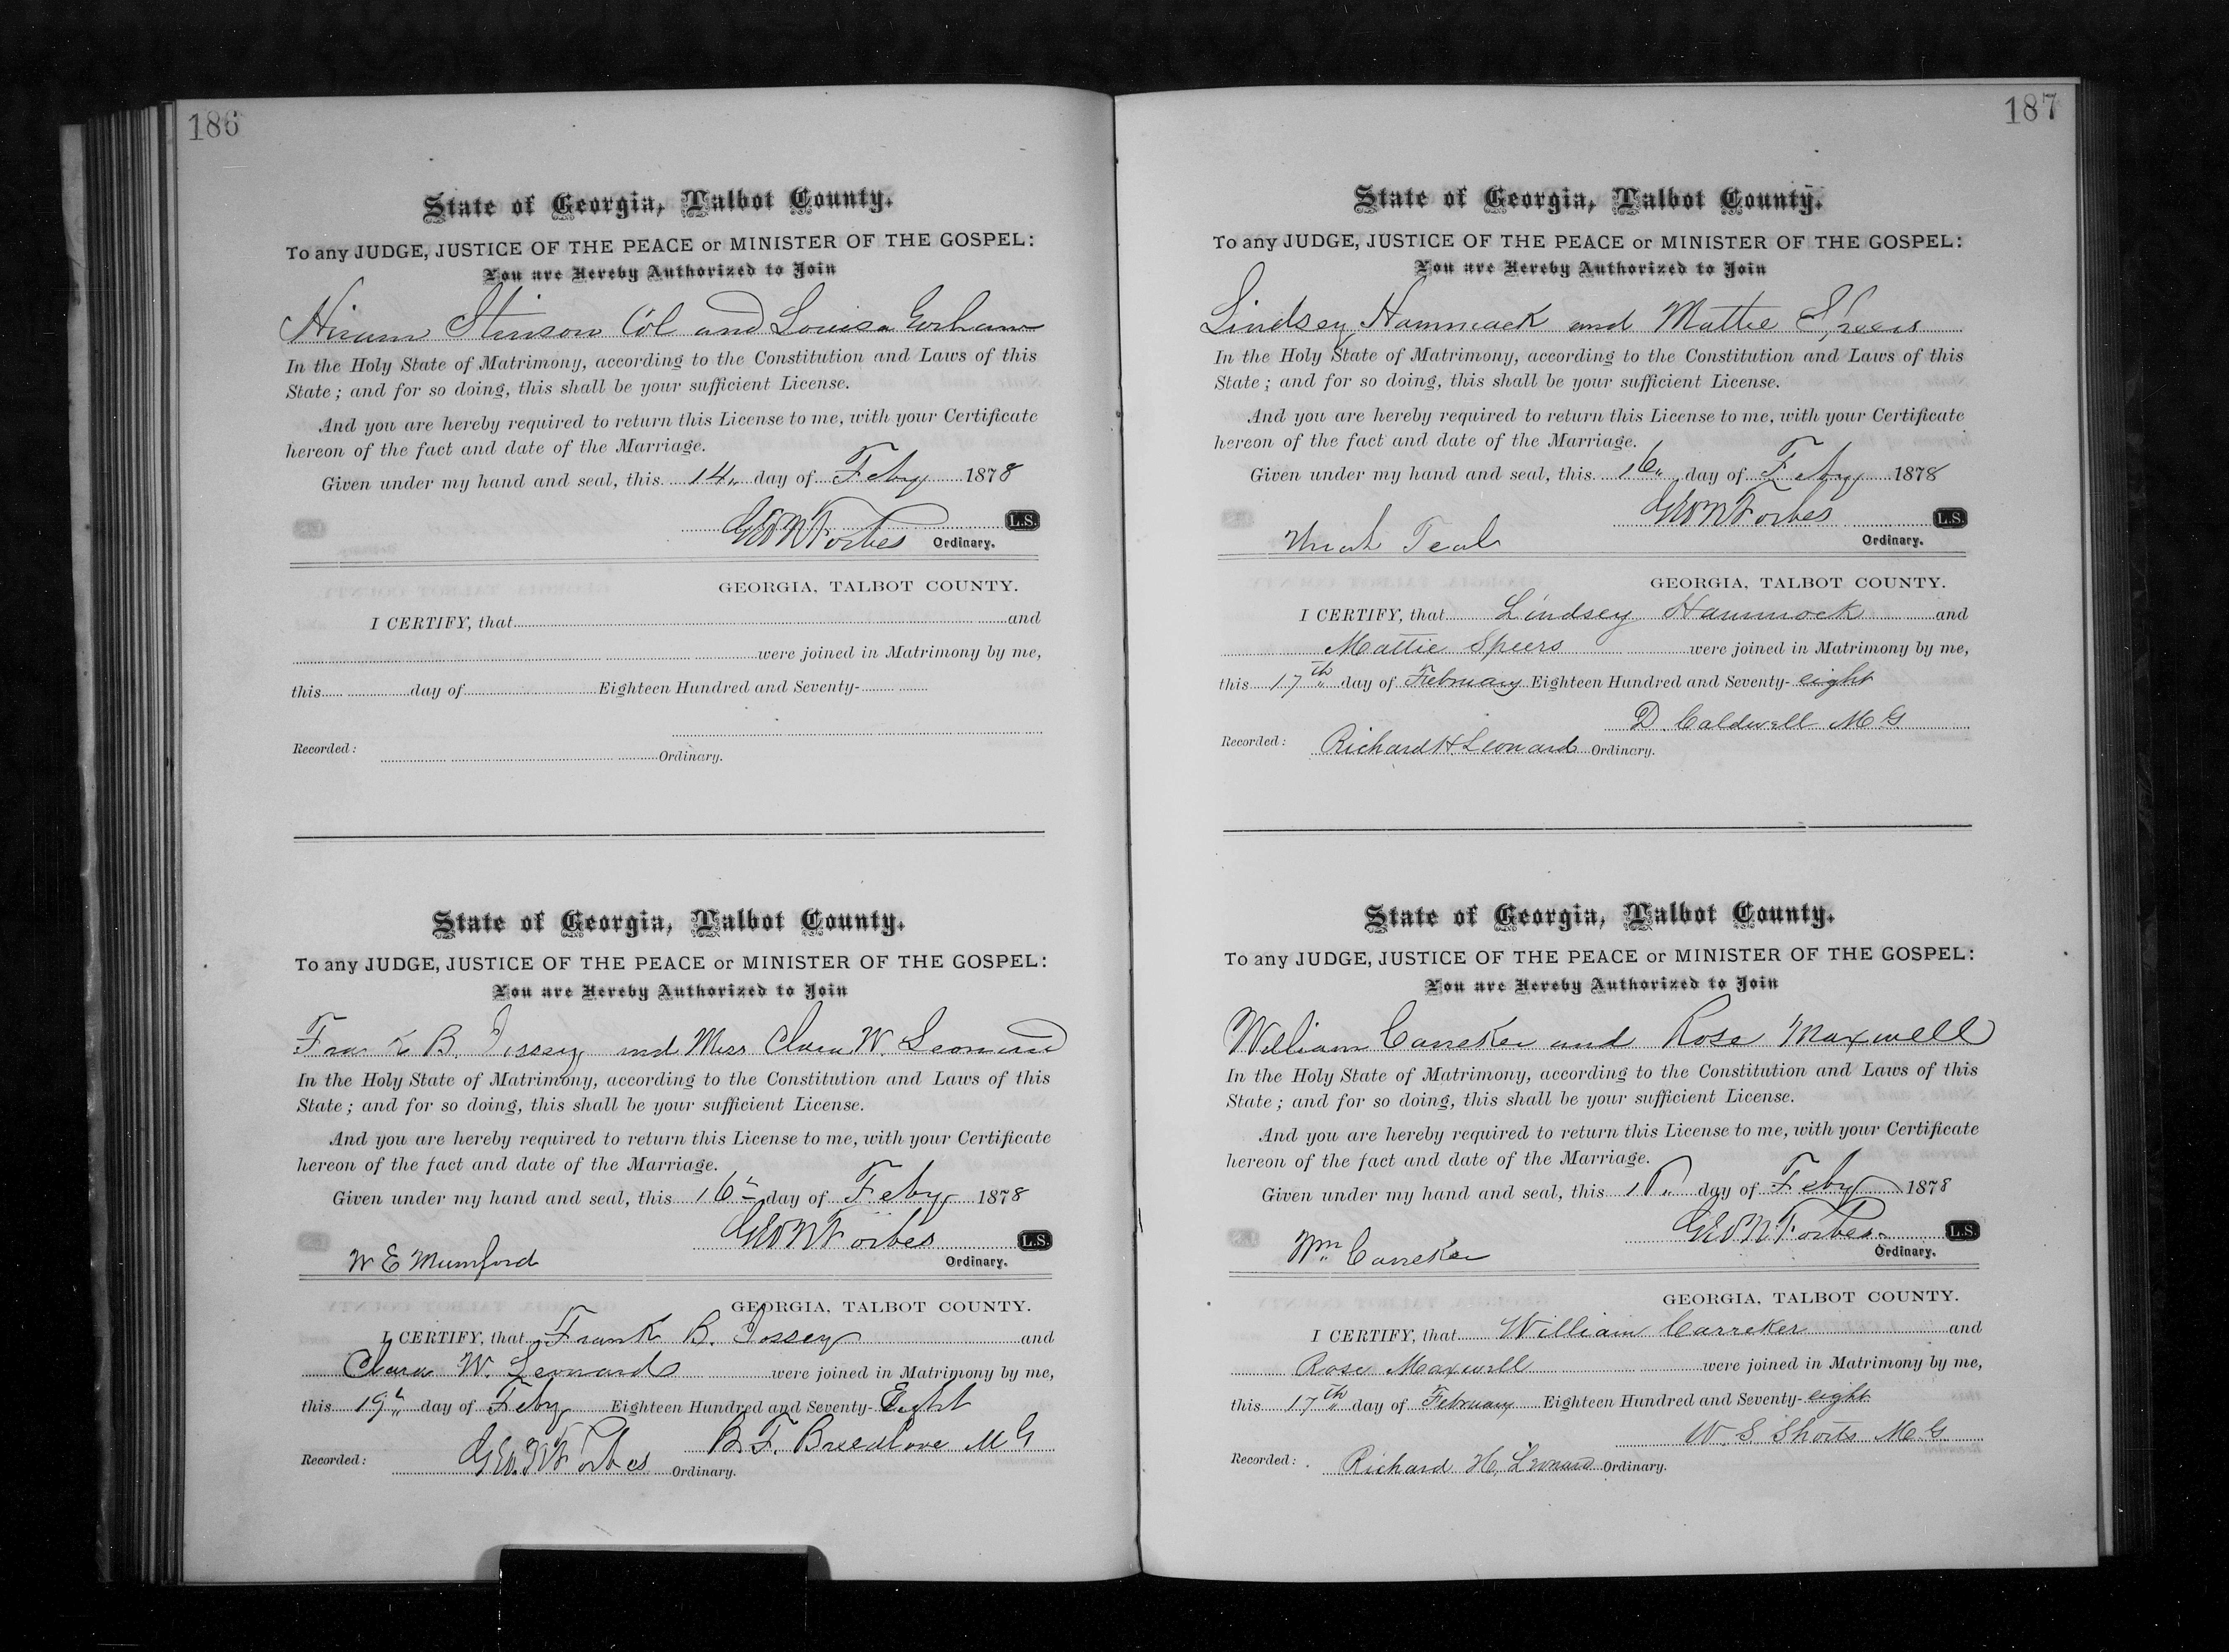 186
State of Georgia, Talbot County.
To any JUDGE, JUSTICE OF THE PEACE or MINISTER OF THE GOSPEL:
You are Hereby Authorized to Join
Hiram Stinson Col and Louisa Gorham
In the Holy State of Matrimony, according to the Constitution and Laws of this
State; and for so doing, this shall be your sufficient License.
And you are hereby required to return this License to me, with your Certificate
hereon of the fact and date of the Marriage.
Given under my hand and seal, this 14 day of Feby 1878
Geo N Forbes L.S.
Ordinary.
GEORGIA, TALBOT COUNTY.
I CERTIFY, that and
were joined in Matrimony by me,
this day of Eighteen Hundred and Seventy-
Recorded: Ordinary.
State of Georgia, Talbot County.
To any JUDGE, JUSTICE OF THE PEACE or MINISTER OF THE GOSPEL:
You are Hereby Authorized to Join
Frank B. Jossey and Miss Clara W. Leonard
In the Holy State of Matrimony, according to the Constitution and Laws of this
State; and for so doing, this shall be your sufficient License.
And you are hereby required to return this License to me, with your Certificate
hereon of the fact and date of the Marriage.
Given under my hand and seal, this 16 day of Feby 1878
Geo N Forbes L.S.
W E Mumford Ordinary.
GEORGIA, TALBOT COUNTY.
I CERTIFY, that Frank B. Jossey and
Clara W. Leonard were joined in Matrimony by me,
this 19 day of Feby Eighteen Hundred and Seventy-Eight
B. F. Breedlove M G
Recorded: Geo. N Forbes Ordinary.
187
State of Georgia, Talbot County.
To any JUDGE, JUSTICE OF THE PEACE or MINISTER OF THE GOSPEL:
You are Hereby Authorized to Join
Lindsey Hammack and Mattie Speers
In the Holy State of Matrimony, according to the Constitution and Laws of this
State; and for so doing, this shall be your sufficient License.
And you are hereby required to return this License to me, with your Certificate
hereon of the fact and date of the Marriage.
Given under my hand and seal, this 16 day of Feby 1878
Geo N Forbes L.S.
Uriah Teal Ordinary.
GEORGIA, TALBOT COUNTY.
I CERTIFY, that Lindsey Hammock and
Mattie Speers were joined in Matrimony by me,
this 17th day of February Eighteen Hundred and Seventy-eight
D. Caldwell M G
Recorded: Richard H Leonard Ordinary.
State of Georgia, Talbot County.
To any JUDGE, JUSTICE OF THE PEACE or MINISTER OF THE GOSPEL:
You are Hereby Authorized to Join
William Carreker and Rose Maxwell
In the Holy State of Matrimony, according to the Constitution and Laws of this
State; and for so doing, this shall be your sufficient License.
And you are hereby required to return this License to me, with your Certificate
hereon of the fact and date of the Marriage.
Given under my hand and seal, this day of Feby 1878
Geo N Forbes L.S.
Wm Carreker Ordinary.
GEORGIA, TALBOT COUNTY.
I CERTIFY, that William Carreker and
Rose Maxwell were joined in Matrimony by me,
this 17th day of February Eighteen Hundred and Seventy-eight
W. S Shorts M G
Recorded: Richard H, Leonard Ordinary.